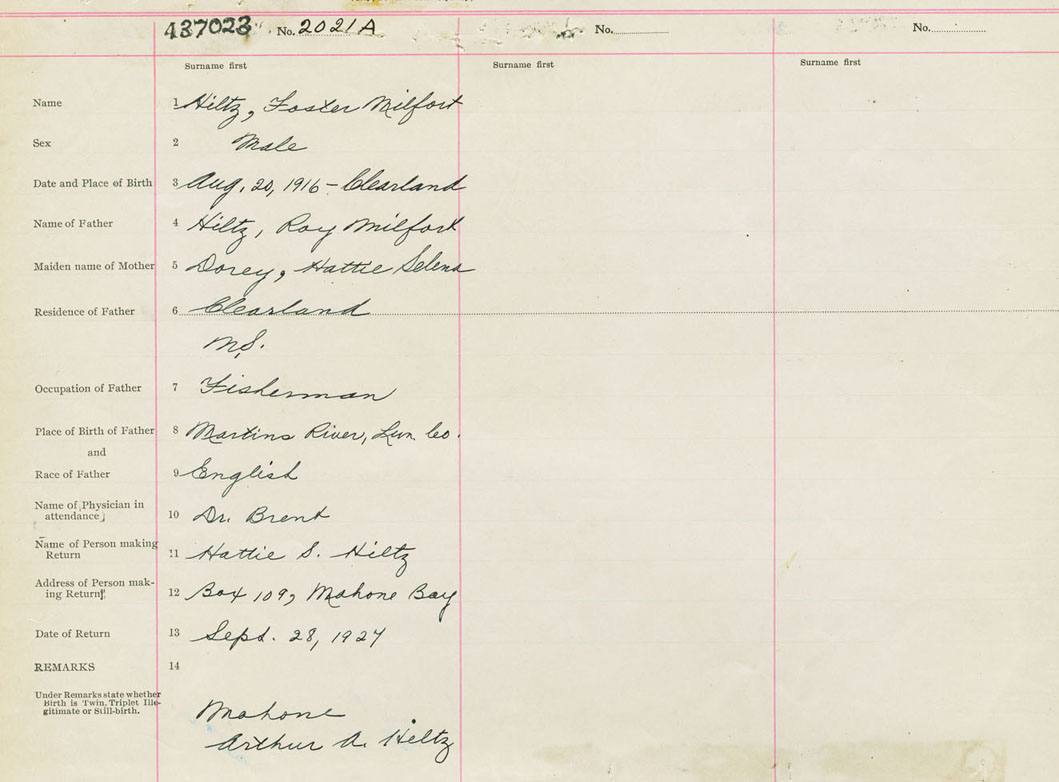 437023 No. 2021A No. No.
Surname first Surname first Surname first
Name 1 Hiltz, Foster Milfort
Sex 2 Male
Date and Place of Birth 3 Aug. 20, 1916 - Clearland
Name of Father 4 Hiltz, Roy Milfort
Maiden name of Mother 5 Dorey, Hattie Selena
Residence of Father 6 Clearland
N.S.
Occupation of Father 7 Fisherman
Place of Birth of Father 8 Martins River, Lun. Co.
and
Race of Father 9 English
Name of Physician in
attendance 10 Dr. Brent
Name of Person making
Return 11 Hattie S. Hiltz
Address of Person mak-
ing Return 12 Box 109, Mahone Bay
Date of Return 13 Sept. 28, 1927
REMARKS 14
Under Remarks state whether
Birth is Twin, Triplet Ille-
gitimate or Still-birth.
Mahone
Arthur A. Hiltz